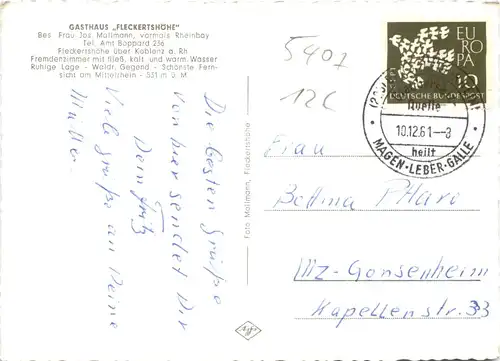 GASTHAUS „FLECKERTSHÖHE"
Bes. Frau Jos. Mallmann, vormals Rheinbay
Tel. Amt Boppard 236
Fleckertshöhe über Koblenz a. Rh
Fremdenzimmer mit fließ. kalt. und warm. Wasser
Ruhige Lage - Waldr. Gegend - Schönste Fern-
sicht am Mittelrhein - 531 m ü. M
Die besten Grüße
von hier sendet Dir
Dein Fritz
Viele Grüße an Deine
Mutter
Foto Mallmann, Fleckertshöhe
Agfa
5407
12C
EUROPA
10
DEUTSCHE BUNDESPOST
Quelle
10.12.61--8
heilt
MAGEN·LEBER·GALLE
Frau
Bettina
Mz-Gonsenheim
Kapellenstr. 33